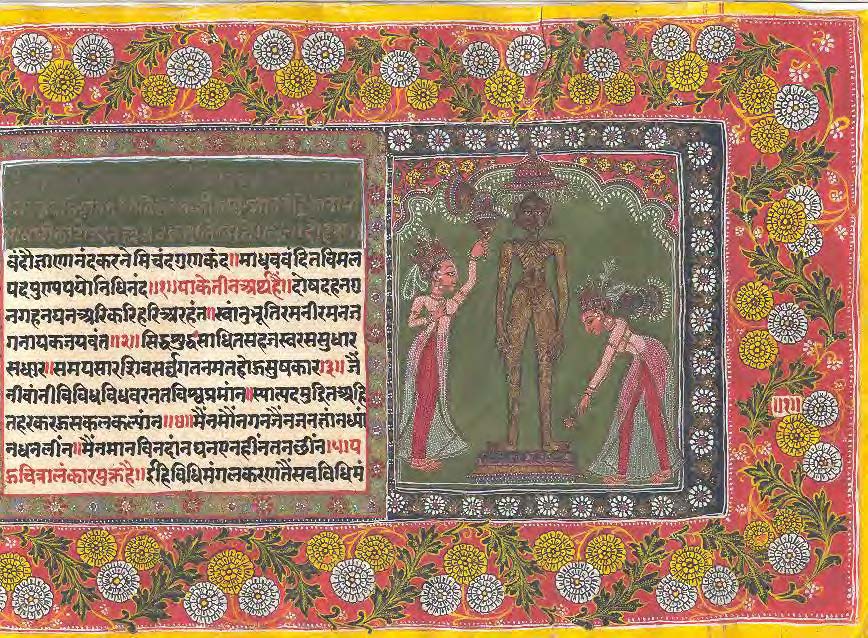 बंदौज्ञाणानंदकरनेमिचंदगुणकंद॥माधववंदितविमल
पदपुण्यपयोनिधिनंद॥१॥याकेतीनअर्थहै॥दोषदहनगु
नगहनघनअरिकरिहरिअरहंत॥स्वांनुभूतिरमनीरमनज
गनायकजयवंत॥२॥सिद्धशुद्धसाधितसहजस्वरससुधार
सधार॥समयसारशिवसर्वगतनमतहोऊसुषकार॥३॥जै
नीवांनीविविधविधवरनतविश्वप्रमांन॥स्यात्पदमुद्रितअहि
तहरकरऊसकलकल्यांन॥४॥मैंनमौंनगनजैंनजनज्ञांनध्यां
नधनलीन॥मैंनमानविनदांनघनएनहींनतनछींन॥५॥य
ऊचित्रालंकारयुक्तहै॥ईहिविधिमंगलकरणतैंसबविधिमं
॥१॥